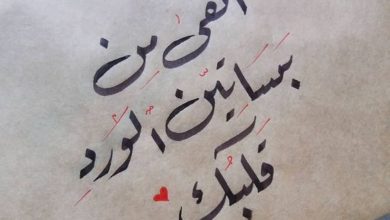 أنقى من
بَسَاتِين الوَردِ
قَلبك